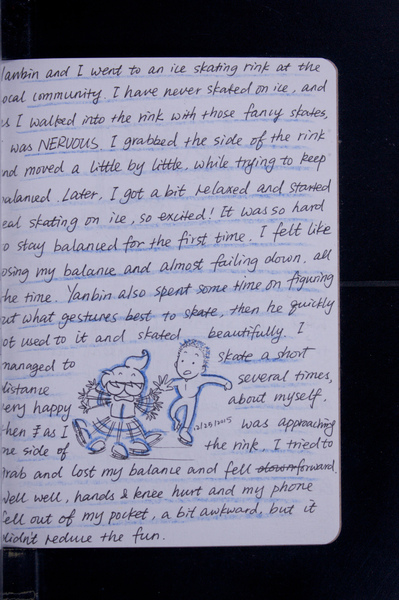 Yanbin and I went to an ice skating rink at the
ocal community. I have never skated on ice, and
s I walked into the rink with those fancy skates,
was NERVOUS. I grabbed the side of the rink
nd moved a little by little, while trying to keep
balanced. Later, I got a bit relaxed and started
eal skating on ice, so excited! It was so hard
o stay balanced for the first time. I felt like
osing my balance and almost falling down, all
he time. Yanbin also spent some time on figuring
ut what gestures best to skate, then he quickly
ot used to it and skated beautifully. I
managed to skate a short
distance several times,
very happy about myself.
12/25/2015
then as I was approaching
ne side of the rink, I tried to
rab and lost my balance and fell down forward.
Well well, hands & knee hurt and my phone
fell out of my pocket, a bit awkward, but it
didn't reduce the fun.